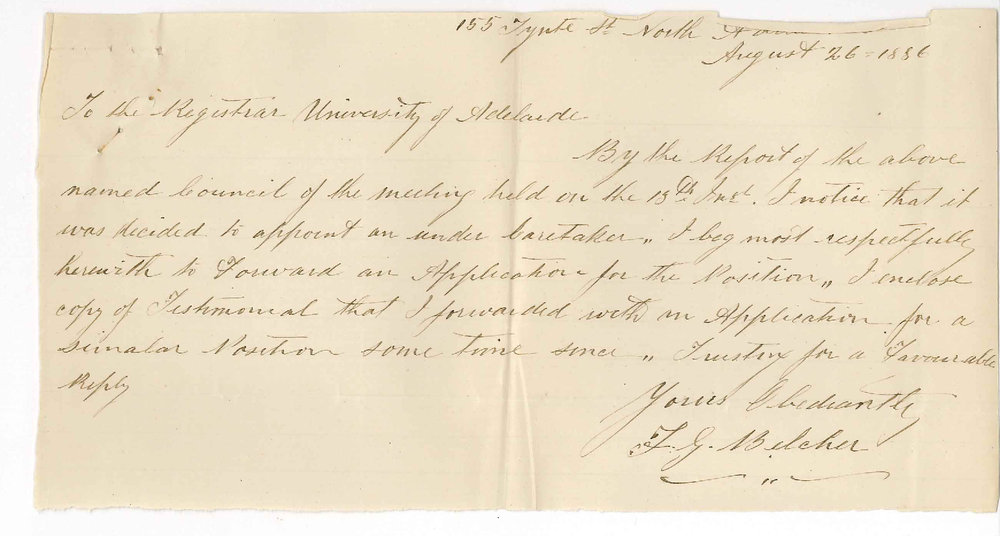 155 Tynte St North A
August 26 = 1886
To the Registrar University of Adelaide
By the Report of the above
named Council of the meeting held on the 13th Inst. I notice that it
was decided to appoint an under Caretaker „ I beg most respectfully
herewith to Forward an Application for the Position „ I enclose
copy of Testimonial that I forwarded with an Application for a
simalar Position some time since „ Trusting for a Favourable
Reply
Yours Obediantly
F. G. Belcher